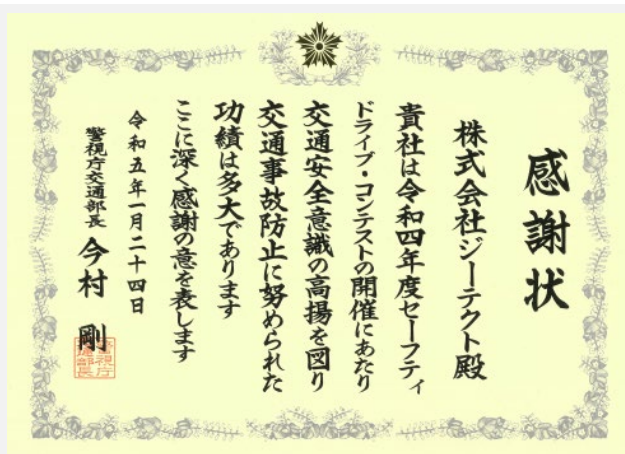 感謝状
株式会社ジーテクト殿
貴社は令和四年度セーフティ
ドライブ・コンテストの開催にあたり
交通安全意識の高揚を図り
交通事故防止に努められた
功績は多大であります
ここに深く感謝の意を表します
令和五年一月二十四日
警視庁交通部長 今村 剛